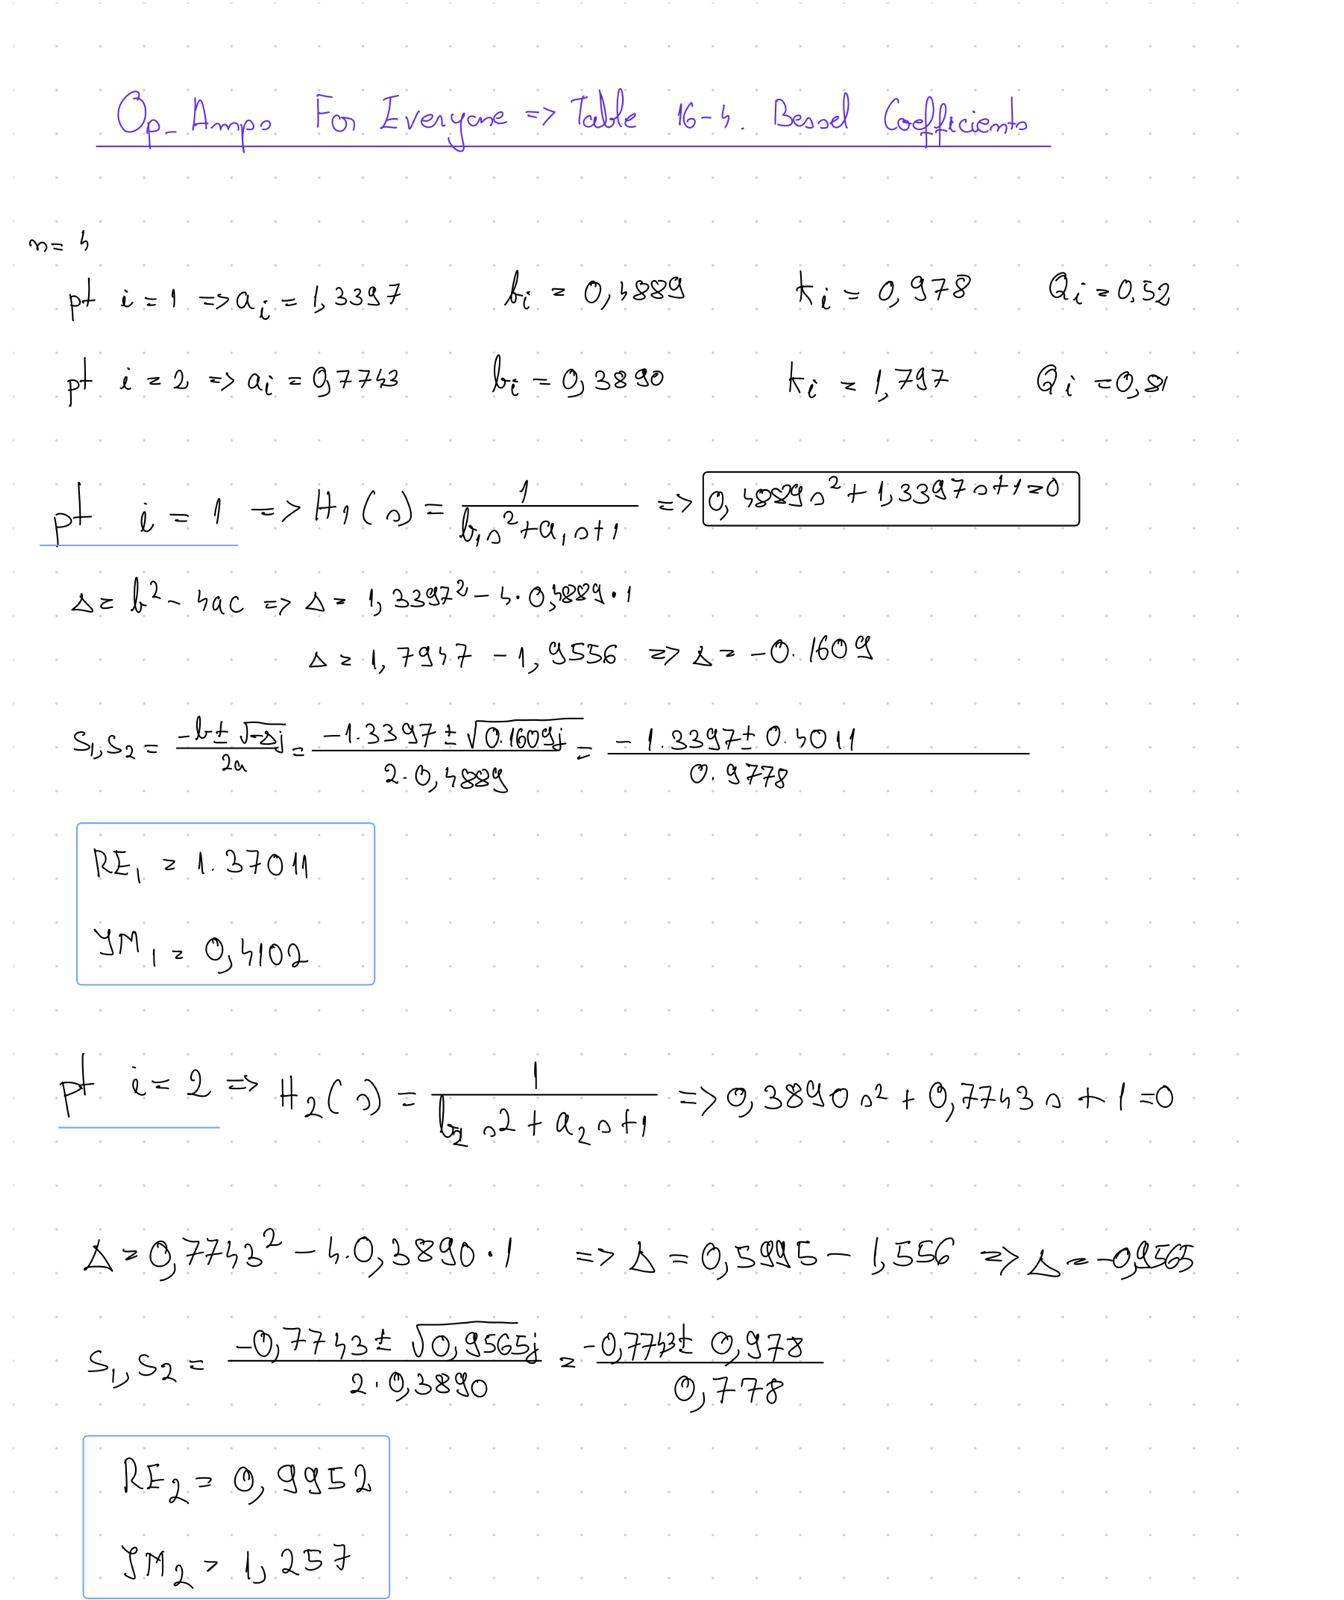 Op-Amps For Everyone => Table 16-4. Bessel Coefficients
n = 4
pt i = 1 => ai = 1,3397 bi = 0,4889 ki = 0,978 Qi = 0,52
pt i = 2 => ai = 0,7743 bi = 0,3890 ki = 1,797 Qi = 0,81
pt i = 1 => H₁(s) = 1 / (b₁s² + a₁s + 1) => 0,4889s² + 1,3397s + 1 = 0
Δ = b² - 4ac => Δ = 1,3397² - 4·0,4889·1
Δ = 1,7947 - 1,9556 => Δ = -0.1609
S₁,S₂ = (-b ± √-Δj) / 2a = (-1.3397 ± √0.1609j) / (2·0,4889) = (-1.3397 ± 0.4011) / 0.9778
RE₁ = 1.37011
IM₁ = 0,4102
pt i = 2 => H₂(s) = 1 / (b₂s2 + a₂s + 1) => 0,3890s² + 0,7743s + 1 = 0
Δ = 0,7743² - 4·0,3890·1 => Δ = 0,5995 - 1,556 => Δ = -0,9565
S₁,S₂ = (-0,7743 ± √0,9565j) / (2·0,3890) = (-0,7743 ± 0,978) / 0,778
RE₂ = 0,9952
IM₂ = 1,257